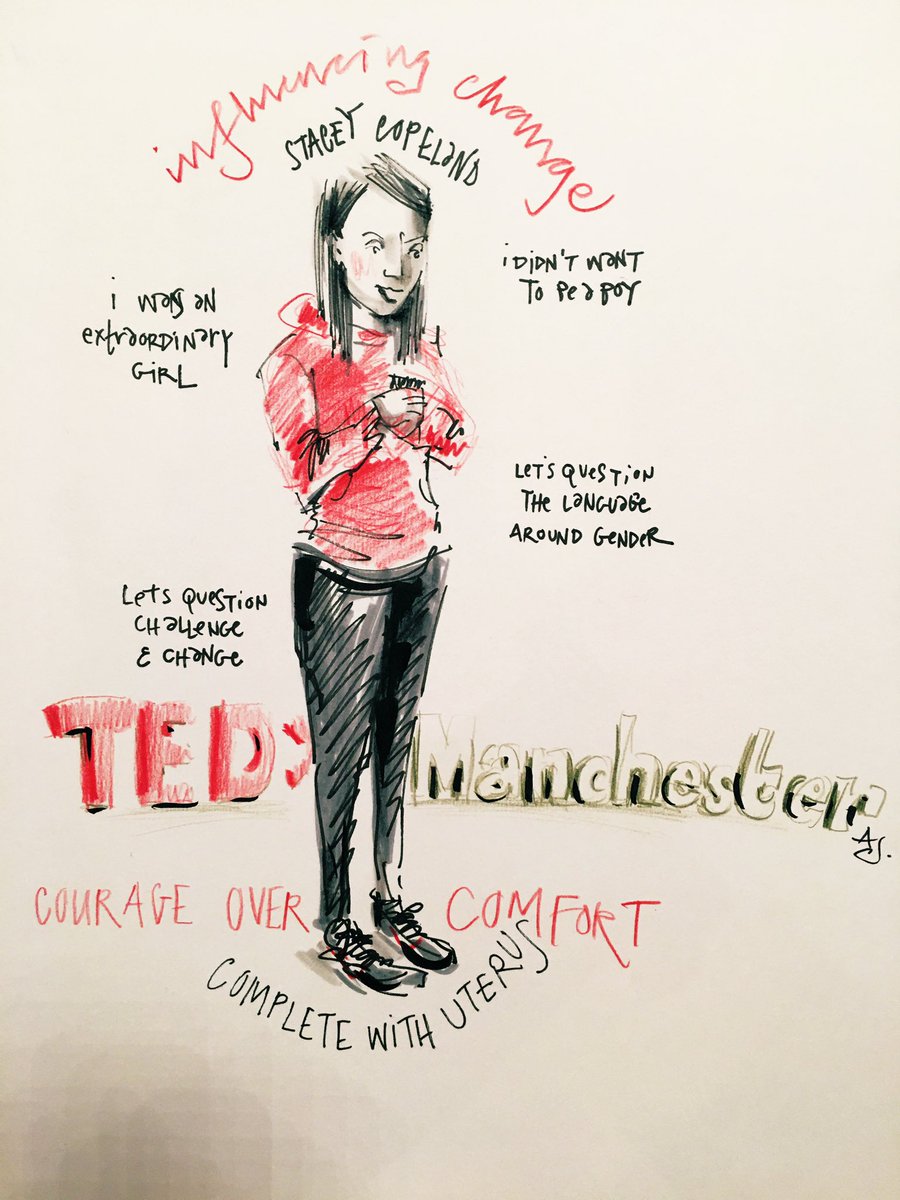 influencing change
STACEY COPELAND
i DiDN'T WANT
TO BE A BOY
i was an
extraordinary
GiRL
LET'S QUESTiON
THE LANGUAGE
AROUND GENDER
LETS QUESTION
CHALLENGE
& CHANGE
TEDx Manchester
AJ.
COURAGE OVER COMFORT
COMPLETE WITH UTERUS